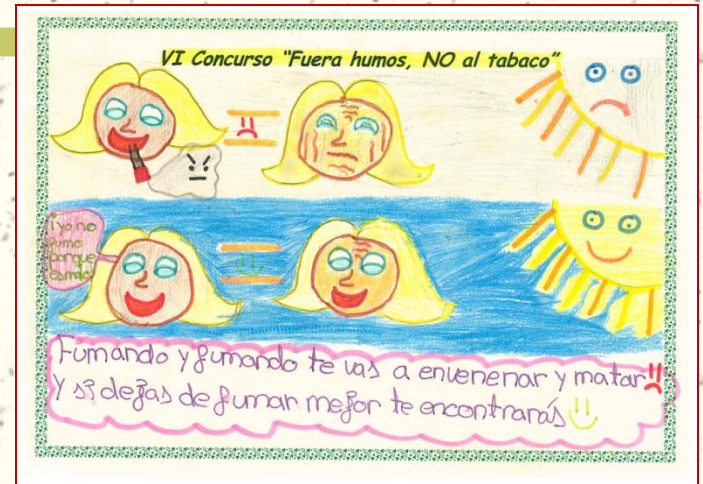 VI Concurso "Fuera humos, NO al tabaco"
¡yo no
fumo
porque
es malo!
Fumando y fumando te vas a envenenar y matar!!
Y si dejas de fumar mejor te encontrarás